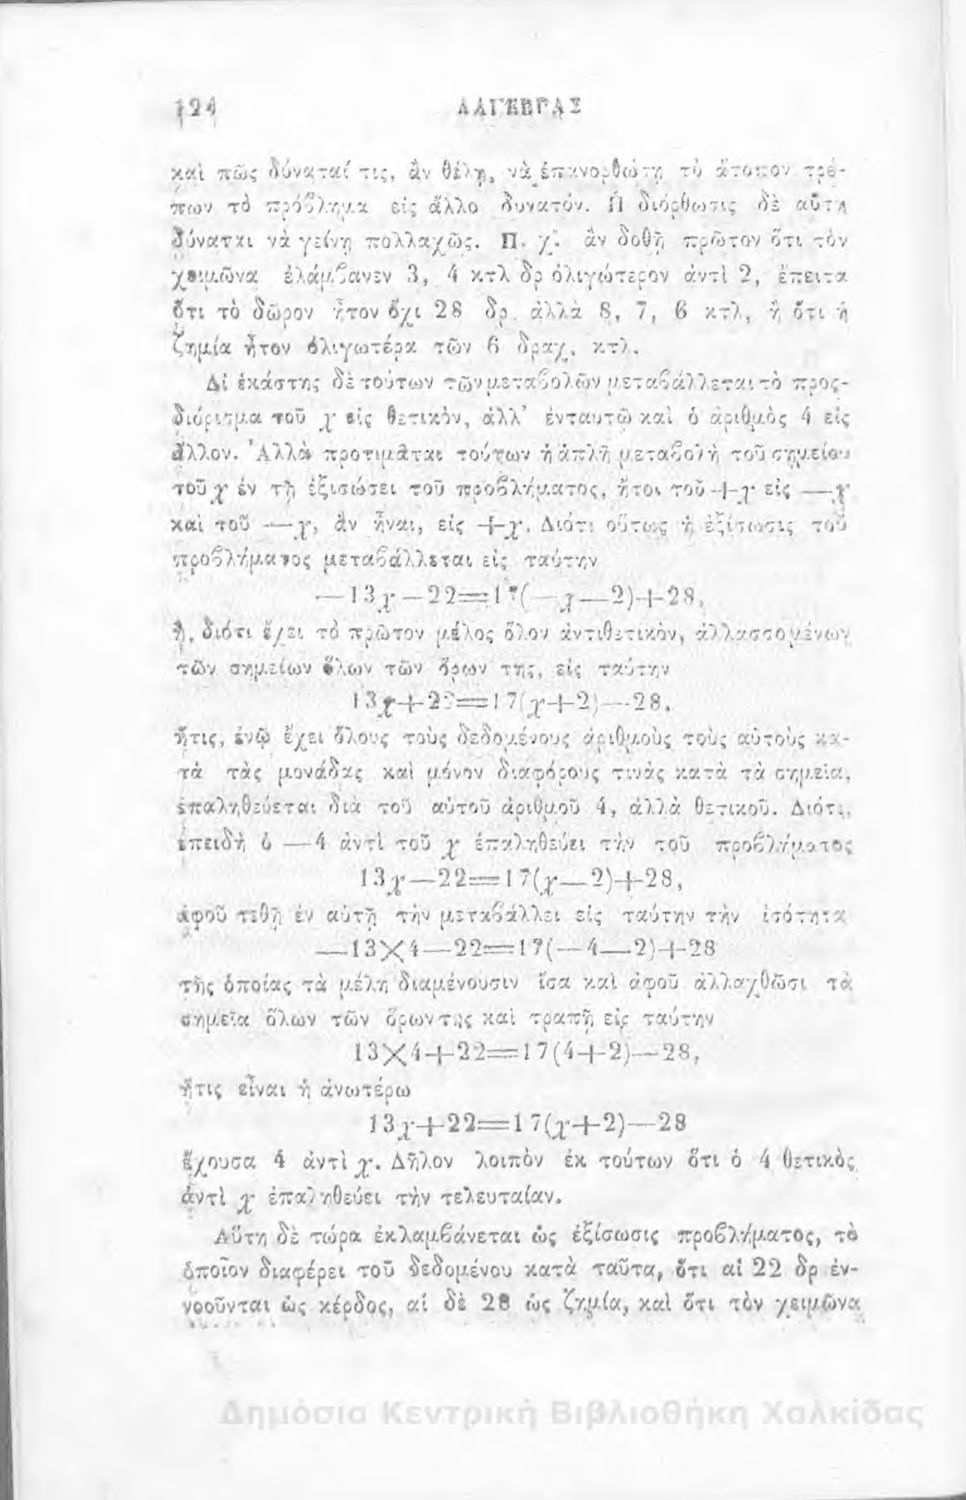 124 ΑΛΓΕΒΡΑΣ
καὶ πῶς δύναταί τις, ἂν θέλῃ, νὰ ἐπανορθώσῃ τὸ ἄτοπον τρέ-
πων τὸ πρόβλημα εἰς ἄλλο δυνατόν. Ἡ διόρθωσις δὲ αὕτη
δύναται νὰ γείνῃ πολλαχῶς. Π. χ. ἂν δοθῇ πρῶτον ὅτι τὸν
χειμῶνα ἐλάμβανεν 3, 4 κτλ δρ ὀλιγώτερον ἀντὶ 2, ἔπειτα
ὅτι τὸ δῶρον ἦτον ὄχι 28 δρ. ἀλλὰ 8, 7, 6 κτλ, ἢ ὅτι ἡ
ζημία ἦτον ὀλιγωτέρα τῶν 6 δραχ. κτλ.
Δι ἑκάστης δὲ τούτων τῶν μεταβολῶν μεταβάλλεται τὸ προς-
διόρισμα τοῦ χ εἰς θετικὸν, ἀλλ' ἐνταυτῷ καὶ ὁ ἀριθμὸς 4 εἰς
ἄλλον. Ἀλλὰ προτιμᾶται τούτων ἡ ἁπλῆ μεταβολὴ τοῦ σημείου
τοῦ χ ἐν τῇ ἐξισώσει τοῦ προβλήματος, ἤτοι τοῦ +χ εἰς —χ
καὶ τοῦ —χ, ἂν ἦναι, εἰς +χ. Διότι οὕτως ἡ ἐξίσωσις τοῦ
προβλήματος μεταβάλλεται εἰς ταύτην
—13χ—22=17(—χ—2)+28,
ἢ, διότι ἔχει τὸ πρῶτον μέλος ὅλον ἀντιθετικὸν, ἀλλασσομένων
τῶν σημείων ὅλων τῶν ὅρων της, εἰς ταύτην
13χ+22=17(χ+2)—28,
ἥτις, ἐνῷ ἔχει ὅλους τοὺς δεδομένους ἀριθμοὺς τοὺς αὐτοὺς κα-
τὰ τὰς μονάδας καὶ μόνον διαφόρους τινὰς κατὰ τὰ σημεῖα,
ἐπαληθεύεται διὰ τοῦ αὐτοῦ ἀριθμοῦ 4, ἀλλὰ θετικοῦ. Διότι,
ἐπειδὴ ὁ —4 ἀντὶ τοῦ χ ἐπαληθεύει τὴν τοῦ προβλήματος
13χ—22=17(χ—2)+28,
ἀφοῦ τεθῇ ἐν αὐτῇ τὴν μεταβάλλει εἰς ταύτην τὴν ἰσότητα
—13×4—22=17(—4—2)+28
τῆς ὁποίας τὰ μέλη διαμένουσιν ἴσα καὶ ἀφοῦ ἀλλαχθῶσι τὰ
σημεῖα ὅλων τῶν ὅρων της καὶ τραπῇ εἰς ταύτην
13×4+22=17(4+2)—28,
ἥτις εἶναι ἡ ἀνωτέρω
13χ+22=17(χ+2)—28
ἔχουσα 4 ἀντὶ χ. Δῆλον λοιπὸν ἐκ τούτων ὅτι ὁ 4 θετικὸς
ἀντὶ χ ἐπαληθεύει τὴν τελευταίαν.
Αὕτη δὲ τώρα ἐκλαμβάνεται ὡς ἐξίσωσις προβλήματος, τὸ
ὁποῖον διαφέρει τοῦ δεδομένου κατὰ ταῦτα, ὅτι αἱ 22 δρ ἐν-
νοοῦνται ὡς κέρδος, αἱ δὲ 28 ὡς ζημία, καὶ ὅτι τὸν χειμῶνα
Δημόσια Κεντρική Βιβλιοθήκη Χαλκίδας